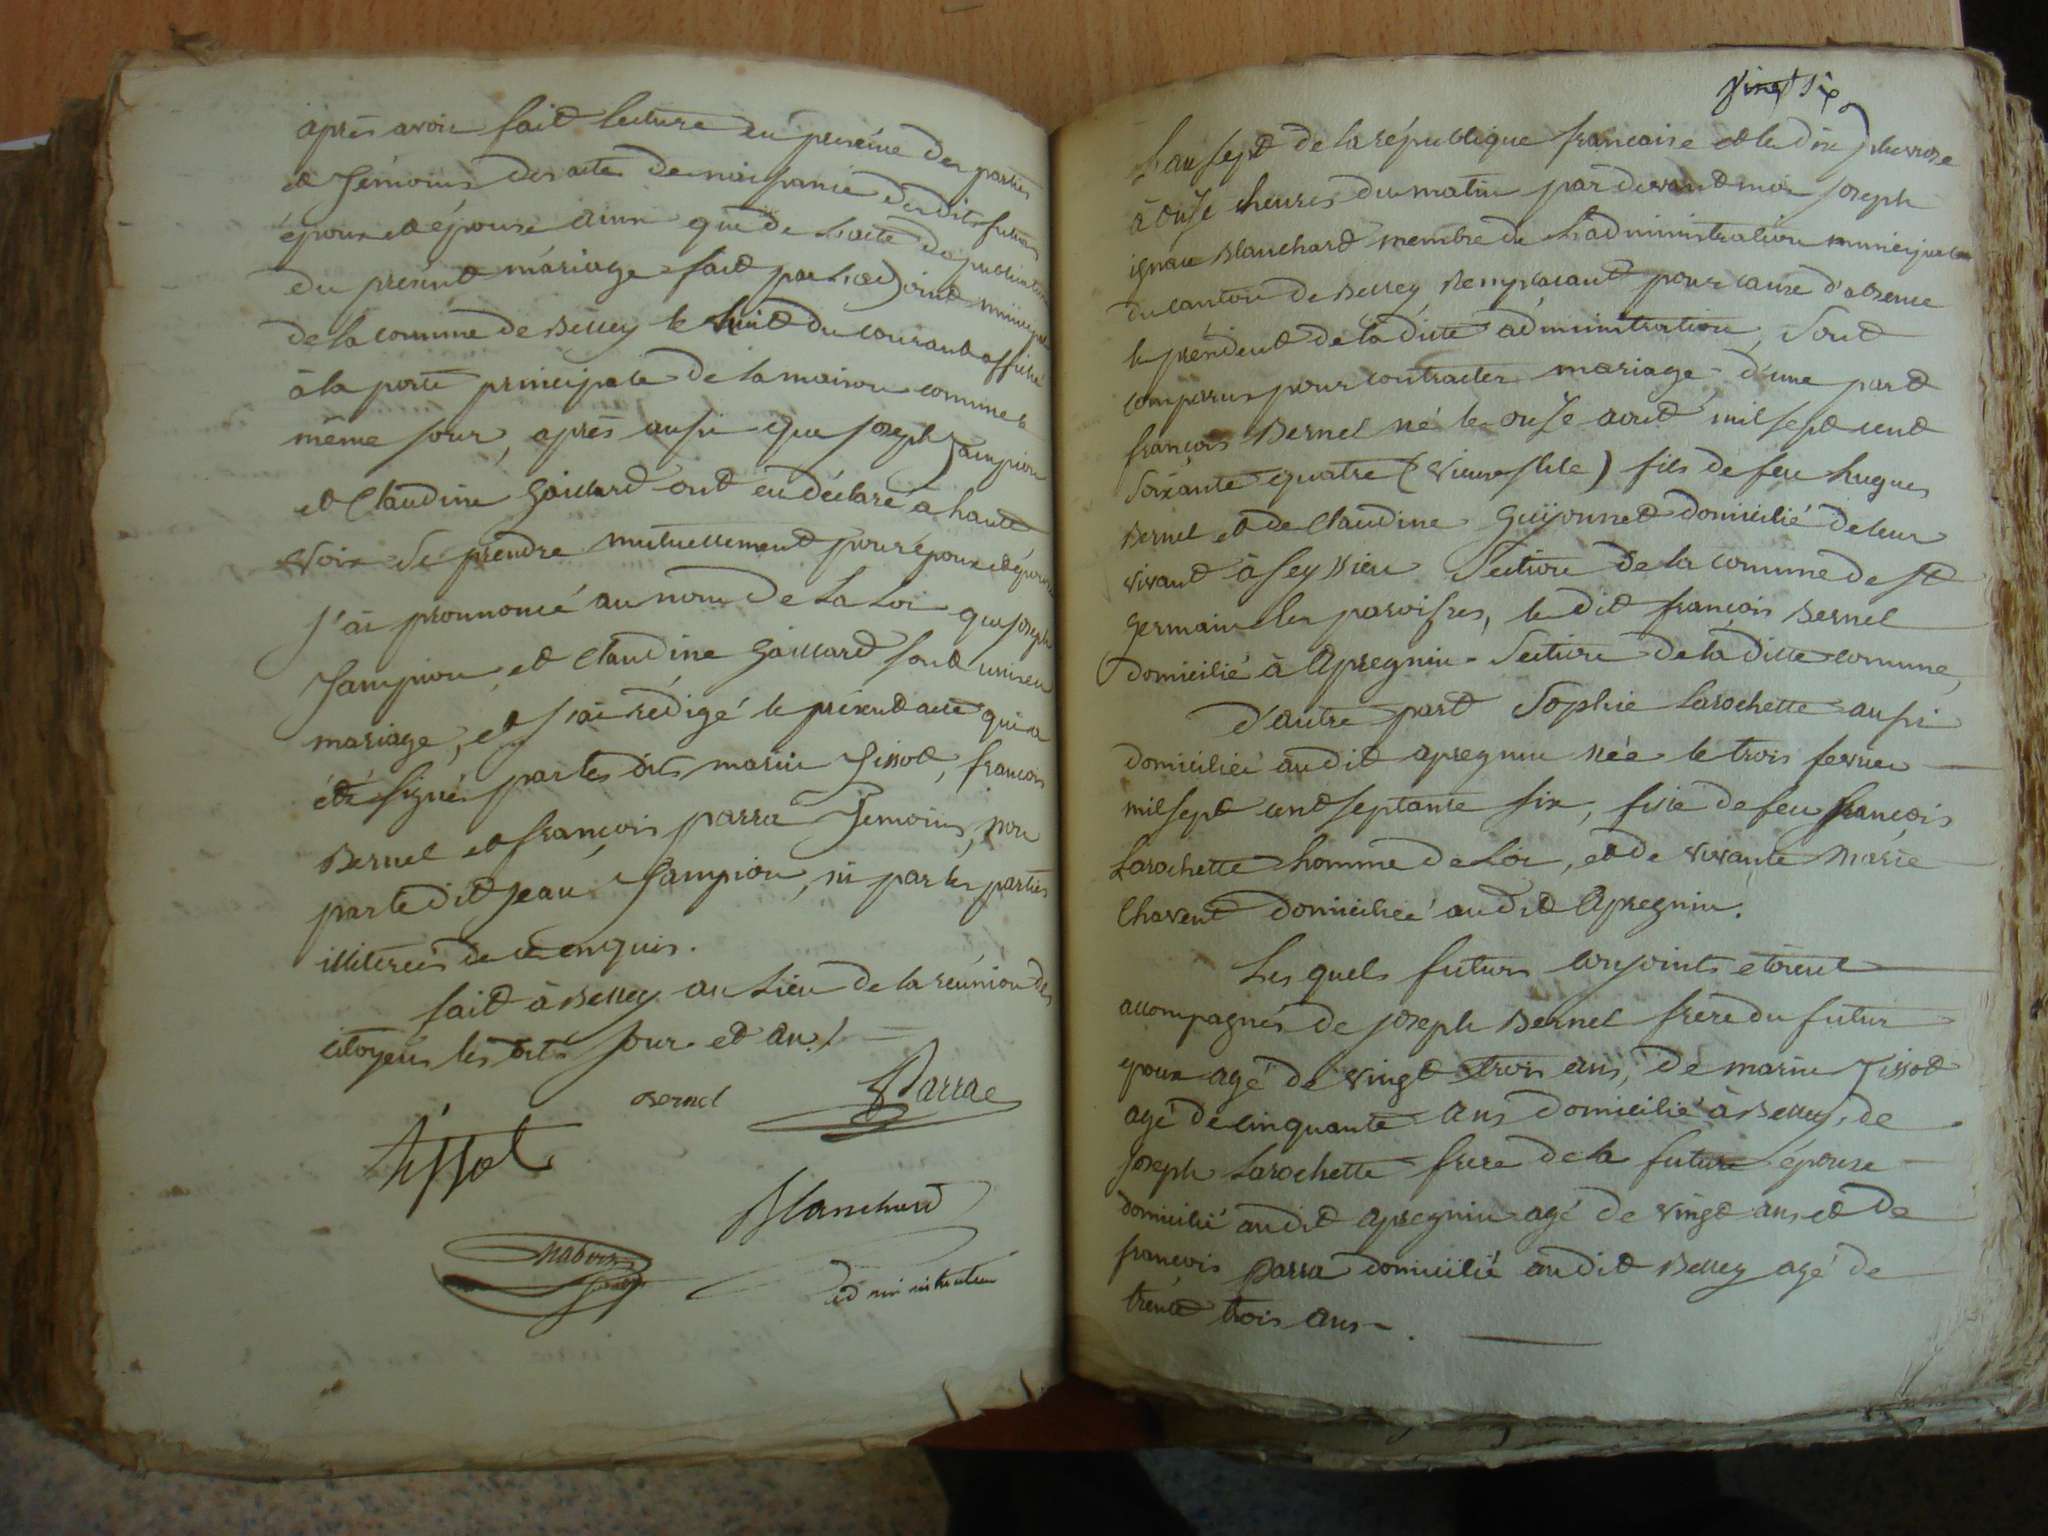 après avoir fait lecture en présence des parties
et Témoins des actes de naissance desdits futurs
époux et épouse ainsi que de L'acte de publication
du présent mariage fait par L'adjoint municipal
de la commune de Belley le huit du courant affiché
à la porte principale de la maison commune le
même jour, après aussi que Joseph Jampion
et Claudine Gaillard ont eu déclaré à haute
voix se prendre mutuellement pour époux et épouse
J'ai prononcé au nom de La Loi que Joseph
Jampion et Claudine Gaillard sont unis en
mariage, et j'ai rédigé le présent acte qui a
été signé par les dits marin Tissot, françois
Bernel et françois parra Temoins, non
par le dit Jean Jampion, ni par les parties
illiterées de ce enquis.
fait à Belley au Lieu de la réunion des
citoyens les dits jour et an /.
Bernel Parra
Tissot
Blanchard
administrateur
vingt six
L'an sept de la république francaise et le dix pluviose
à onze heures du matin par devant moi Joseph
ignace Blanchard membre de L'administration municipale
du canton de Belley Remplacant pour cause d'absence
le président de la dite administration, sont
comparus pour contracter mariage d'une part
françois Bernel né le onze aout mil sept cent
soixante quatre (vieux stile) fils de feu hugues
Bernel et de Claudine Guÿonnet domicilié de leur
vivant à seyssieu Section de la commune de St
Germain les paroisses, le dit françois Bernel
domicilié à Apregnin Section de la ditte comune,
d'autre part Sophie Larochette aussi
domiciliée audit apregnin née le trois fevrier
mil sept cent septante six, fille de feu françois
Larochette homme de Loi, et de vivante Marie
Chavent domiciliée audit Apregnin.
Lesquels futurs conjoints etoient
accompagnés de Joseph Bernel frere du futur
epoux agé de vingt trois ans, de marin Tissot
agé de cinquante ans domicilié à Belley, de
Joseph Larochette frere de la future épouse
domicilié audit apregnin agé de vingt ans et de
françois parra domicilié audit Belley agé de
trente trois ans.